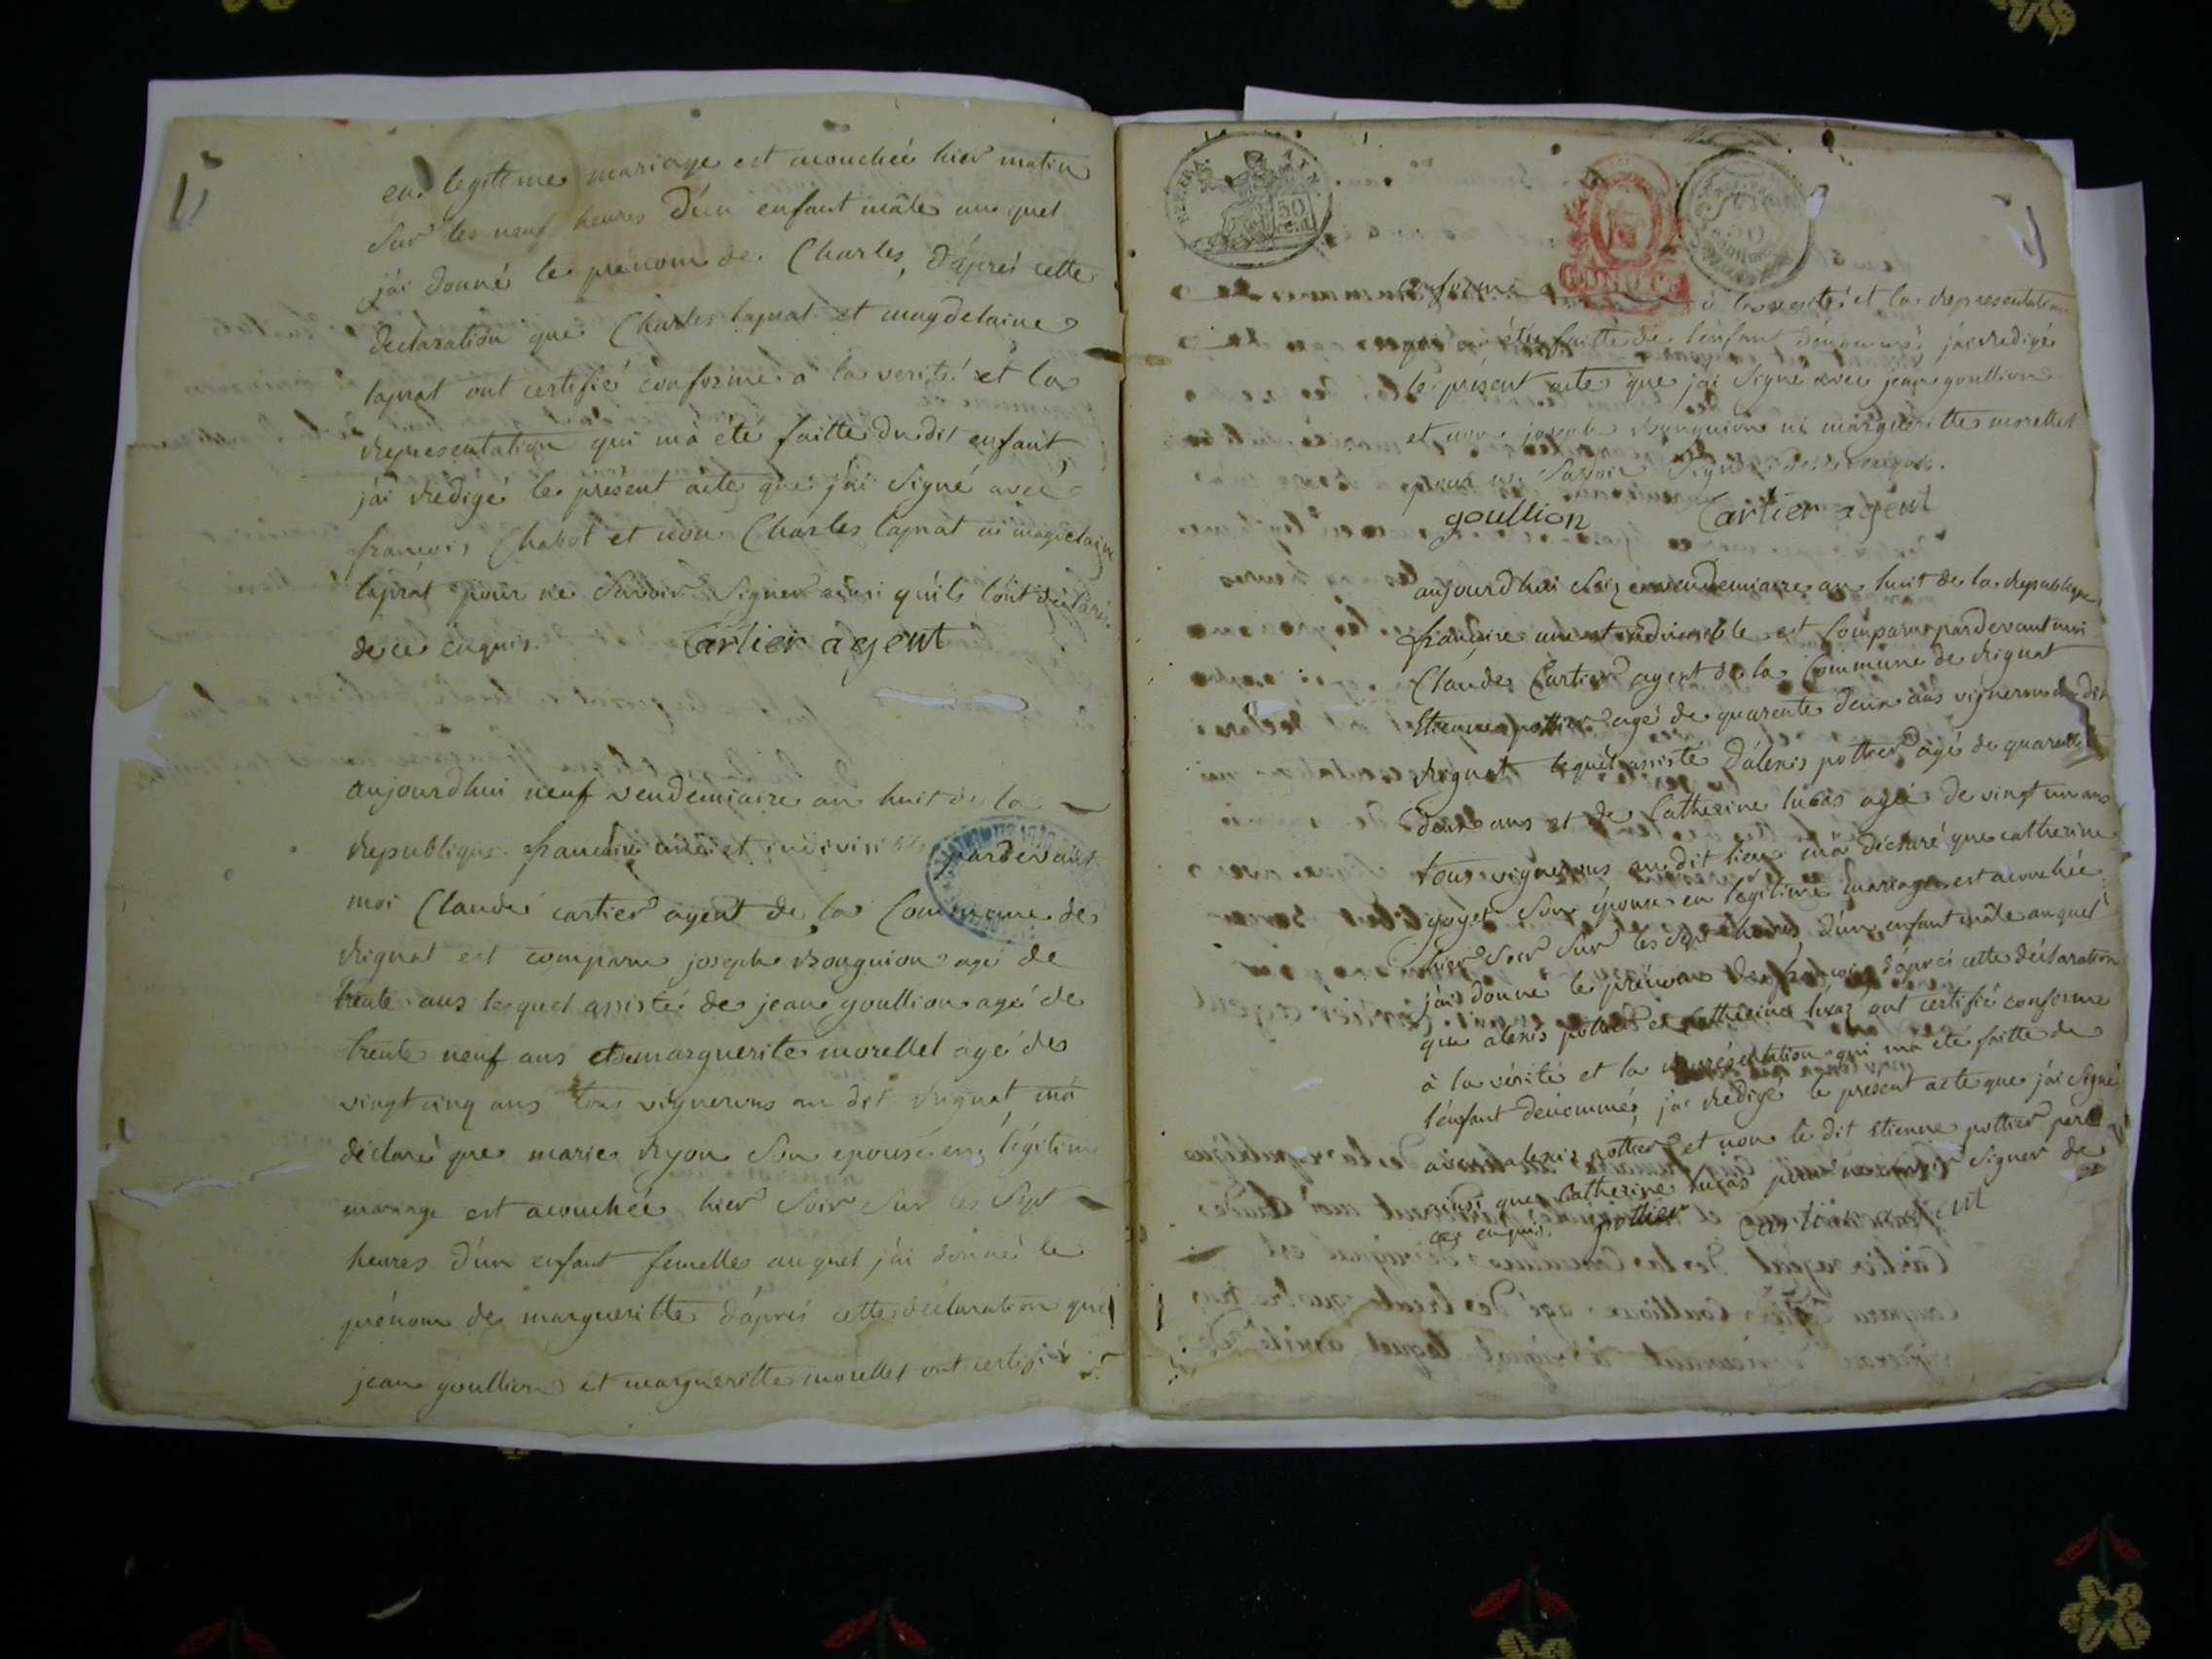 en legitime mariage est acouchée hier matin
sur les neuf heures d'un enfant mâle au quel
j'ai donné le prénom de Charles, d'áprés cette
declaration que Charles laprat et magdelaine
laprat ont certifié conforme a la verité et la
representation qui m'a été faitte du dit enfant,
j'ai redigé le présent acte que j'ai signé avec
francois Chabot et non Charles laprat ni magdelaine
laprat pour ne savoir signer ainsi qu'ils l'ont déclaré
de ce enquis. Cartier agent
aujourdhui neuf vendemiaire an huit de la
republique francaise une et indivisible pardevant
moi Claude cartier agent de la Commune de
rignat est comparu joseph bouguion agé de
trente ans lequel assisté de jean goullion agé de
trente neuf ans et de marguerite morellet agé de
vingt cinq ans tous vignerons au dit rignat, m'a
déclaré que marie ryon son epouse en légitime
mariage est acouchée hier soir sur les sept
heures d'un enfant femelle auquel j'ai donné le
prénom de margueritte d'áprés cette déclaration que
jean goullion et margueritte morellet ont certifié
REP. FRA.
50
cent
conforme à la verité et la representation
qui m'a été faitte de l'enfant dénommé, j'ai redigé
le présent acte que j'ai signé avec jean goullion
et non joseph bouguion ni margueritte morellet
pour ne savoir signer de ce enquis.
goullion Cartier agent
aujourdhui seize vendemiaire an huit de la republique
francaise une et indivisible est comparu pardevant moi
Claude Cartier agent de la Commune de rignat
Etienne pottier agé de quarente deux ans vigneron du dit
rignat lequel assisté d'alexis pottier agé de quarente
deux ans et de Catherine lucas agée de vingt un ans
tous vignerons au dit lieu m'a déclaré que catherine
goyet son épouse en légitime mariage est acouchée
hier soir sur les sept heures d'un enfant mâle auquel
j'ai donné le prénom de francois, d'áprés cette déclaration
que alexis pottier et Catherine lucas ont certifié conforme
à la vérité et la représentation qui m'a été faitte de
l'enfant dénommé, j'ai redigé le présent acte que j'ai signé
avec alexis pottier et non le dit Etienne pottier pere
ainsi que Catherine lucas pour ne savoir signer de
ce enquis. pottier Cartier agent